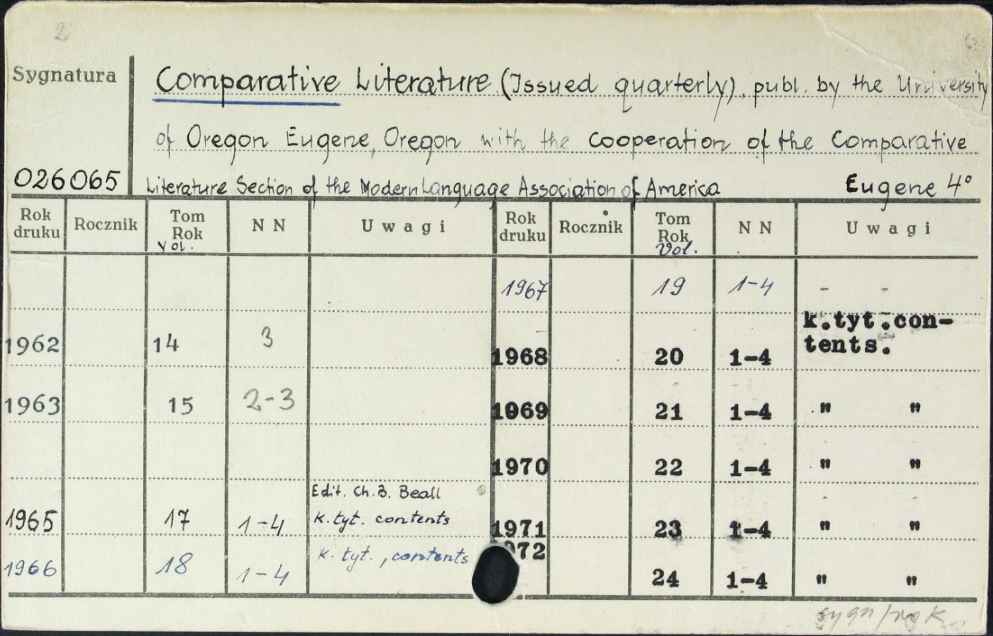 2
Sygnatura
Comparative Literature (Issued quarterly) publ. by the University
of Oregon Eugene, Oregon with the cooperation of the Comparative
026065 Literature Section of the Modern Language Association of America Eugene 4°
Rok druku Rocznik Tom Rok Vol. N N Uwagi Rok druku Rocznik Tom Rok Vol. N N Uwagi
1967 19 1-4 - -
1962 14 3 1968 20 1-4 k.tyt.con-
tents.
1963 15 2-3 1969 21 1-4 " "
1970 22 1-4 " "
Edit. Ch. B. Beall
1965 17 1-4 k.tyt. contents 1971 23 1-4 " "
1966 18 1-4 k. tyt., contents 1972 24 1-4 " "